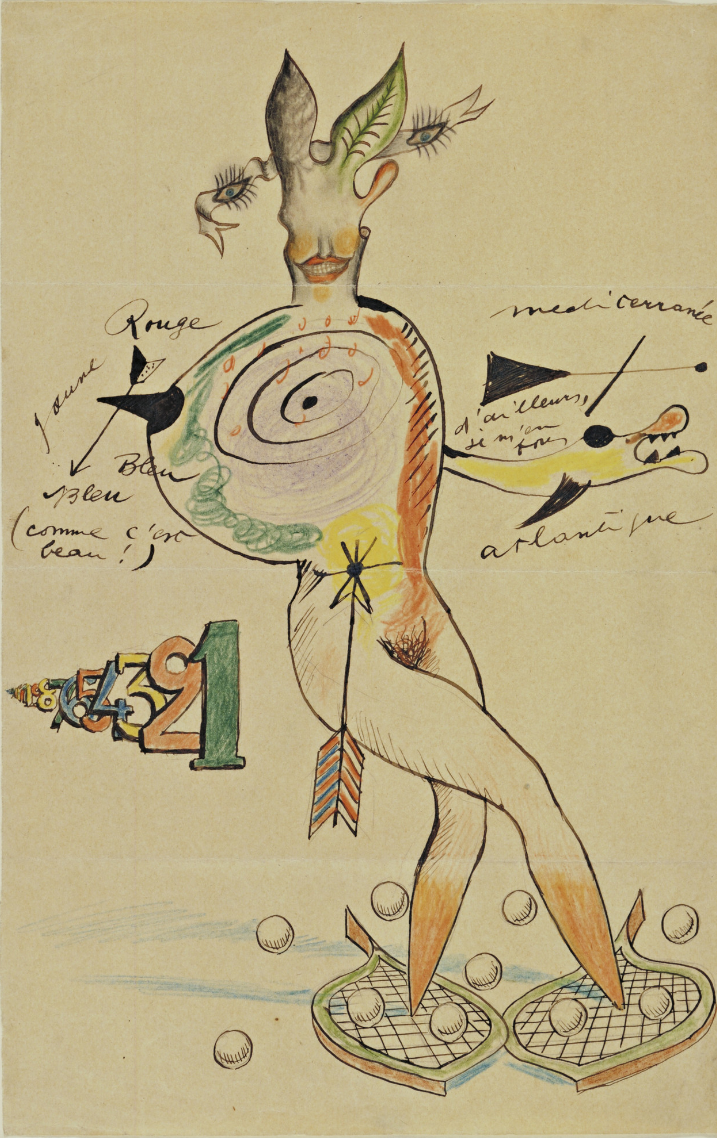 Rouge
Jaune
Bleu
Bleu
(comme c'est
beau !)
mediterranée
d'ailleurs,
je m'en
fous
atlantique
1
2
3
4
5
6
8